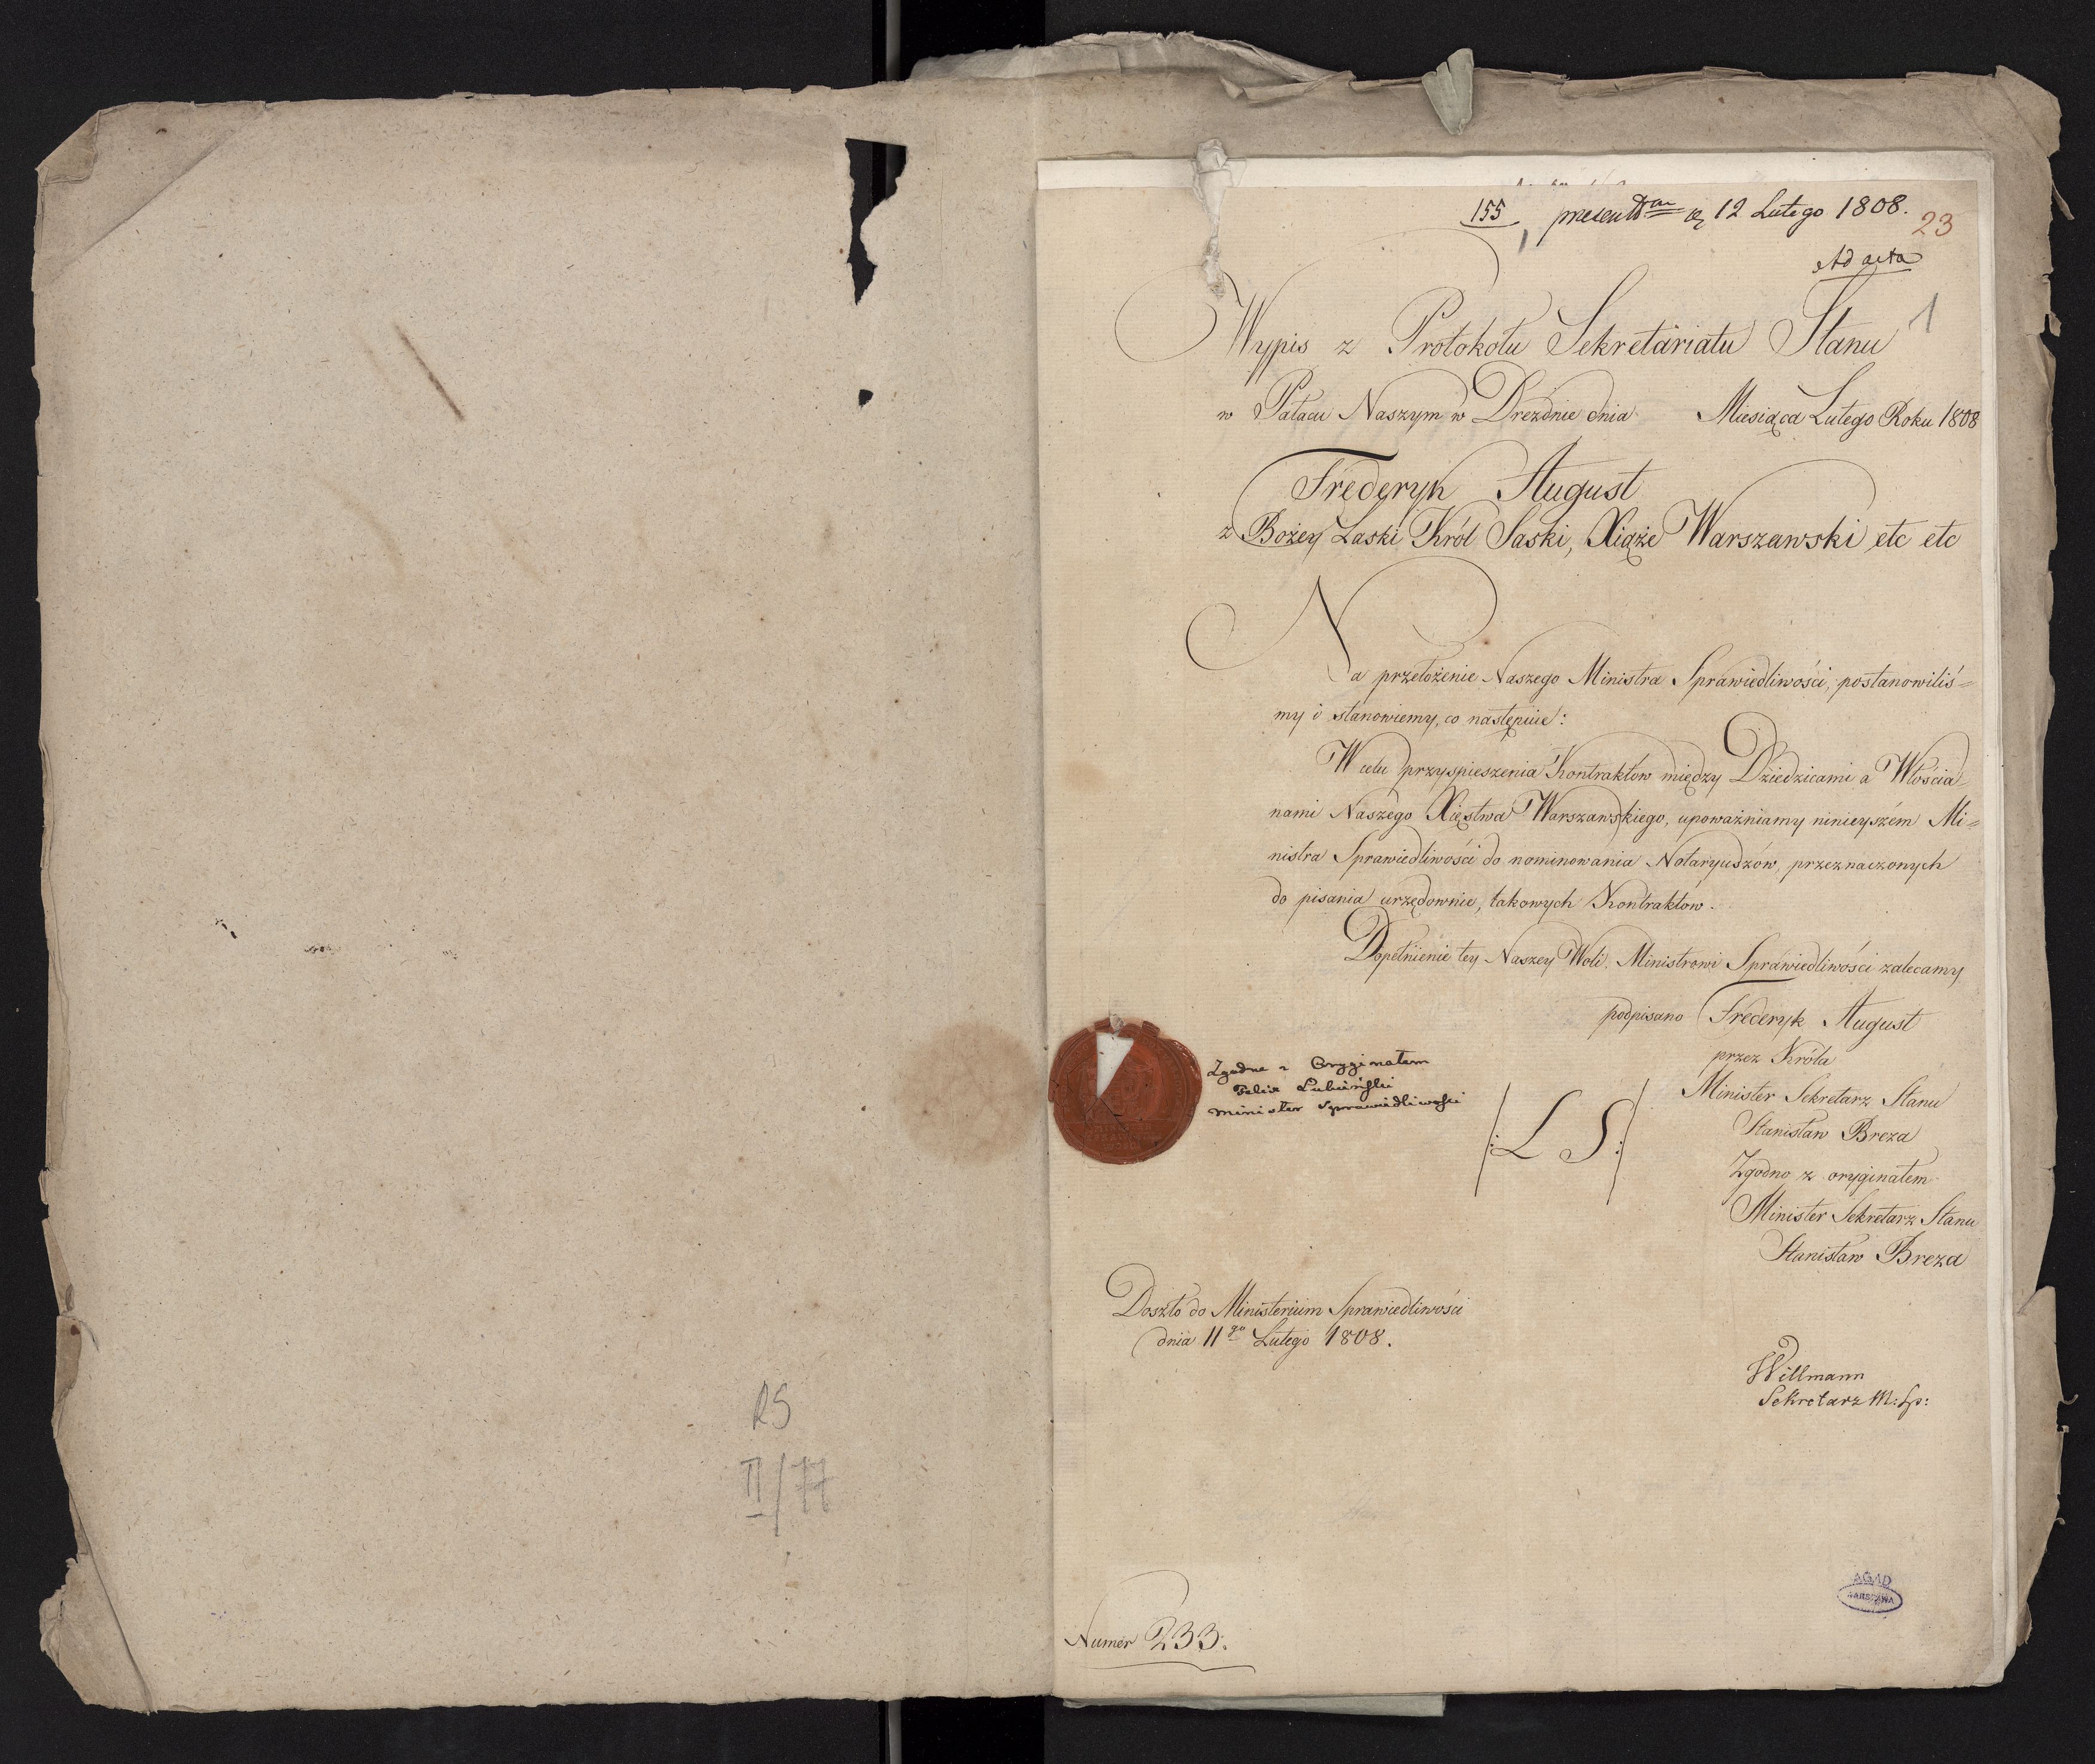 155 presentm 12 Lutego 1808.
23
Ad acta
1
Wypis z Protokołu Sekretariatu Stanu
w Pałacu Naszym w Dreznie dnia Miesiąca Lutego Roku 1808
Frederyk August
z Bożey Łaski Król Saski, Xiąże Warszawski etc etc
Na przełożenie Naszego Ministra Sprawiedliwości, postanowiliś=
my i stanowiemy, co następuie:
W celu przyspieszenia Kontraktow między Dziedzicami a Włościa
nami Naszego Xięstwa Warszawskiego, upoważniamy ninieyszém Mi=
nistra Sprawiedliwości do nominowania Notaryuszów, przeznaczonych
do pisania urzędownie, takowych Kontraktów.
Dopełnienie tey Naszey Woli, Ministrowi Sprawiedliwości zalecamy
podpisano Frederyk August
przez Króla
Minister Sekretarz Stanu
Stanisław Breza
Zgodno z oryginałem
Minister Sekretarz Stanu
Stanisław Breza
Zgodno z Oryginałem
Felix Lubieński
Minister Sprawiedliwości
/: L S :/
Doszło do Ministerium Sprawiedliwości
dnia 11go Lutego 1808.
Willmann
Sekretarz M: Sp:
RS
II/77
Numer 233.
AGAD
WARSZAWA